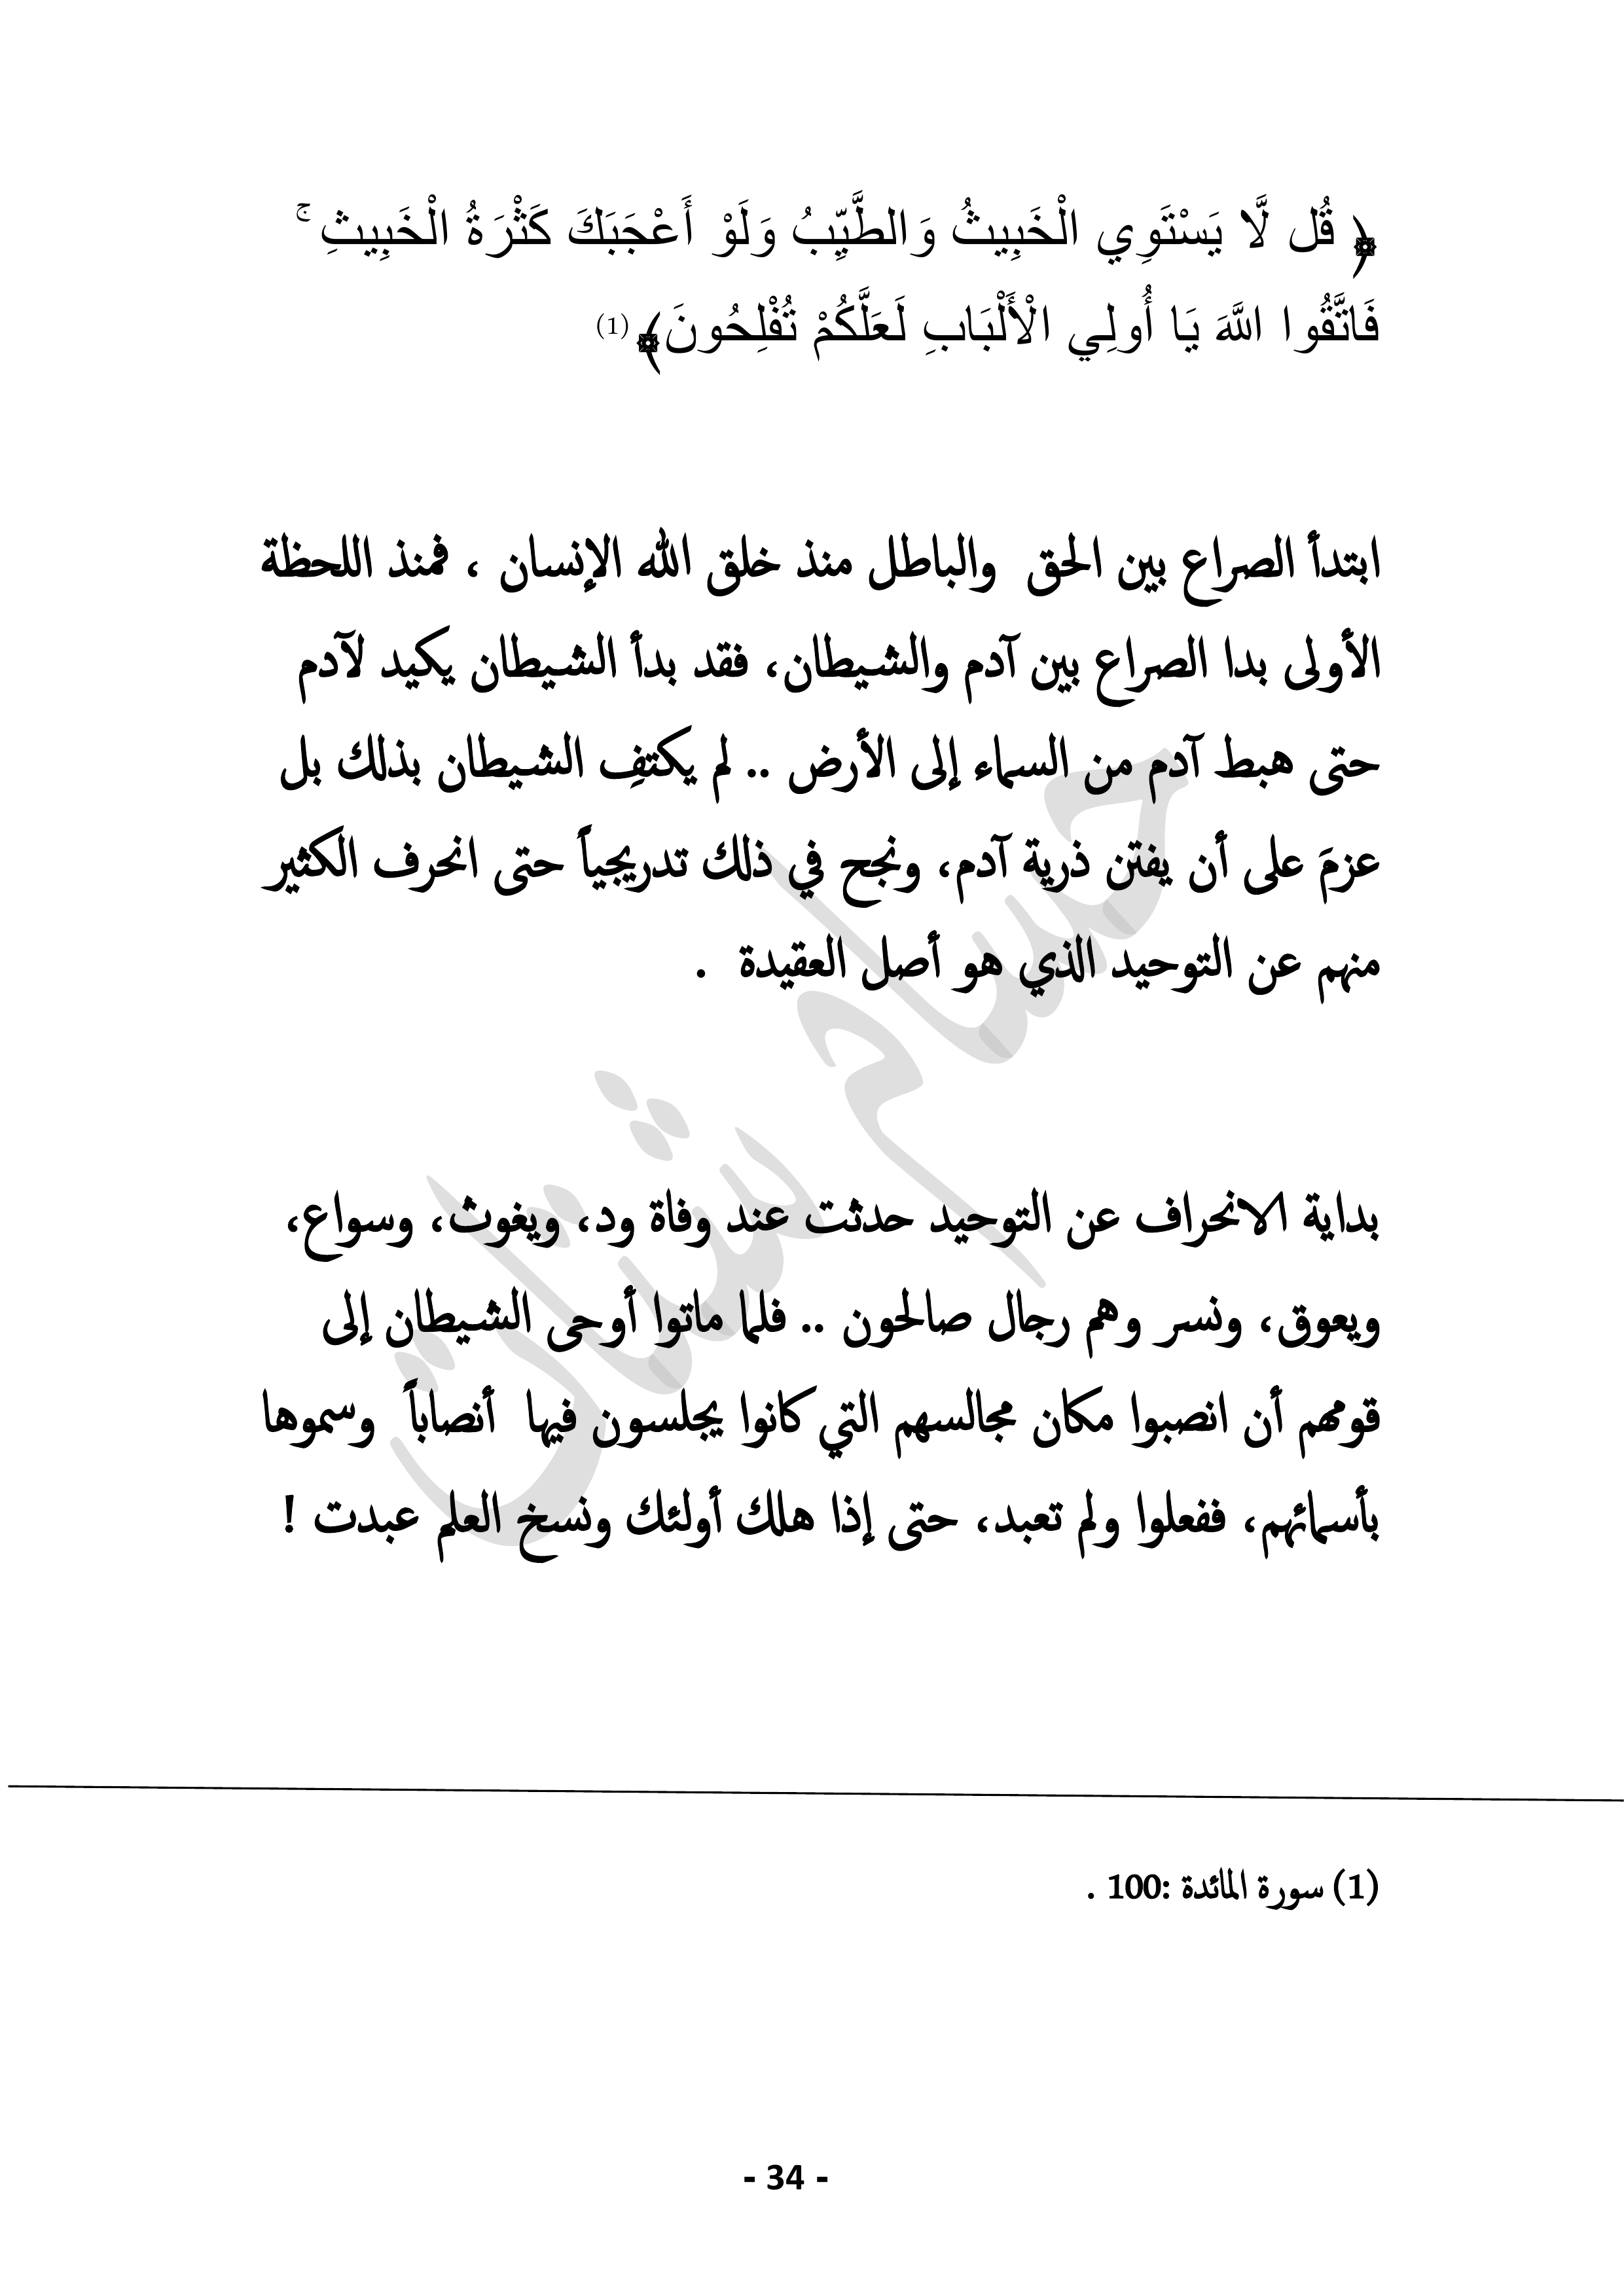 ﴿ قُل لَّا يَسْتَوِي الْخَبِيثُ وَالطَّيِّبُ وَلَوْ أَعْجَبَكَ كَثْرَةُ الْخَبِيثِ ۚ
فَاتَّقُوا اللَّهَ يَا أُولِي الْأَلْبَابِ لَعَلَّكُمْ تُفْلِحُونَ﴾ (1)
ابتدأ الصراع بين الحق والباطل منذ خلق الله الإنسان ، فمنذ اللحظة
الأولى بدا الصراع بين آدم والشيطان، فقد بدأ الشيطان يكيد لآدم
حتى هبط آدم من السماء إلى الأرض .. لم يكتفِ الشيطان بذلك بل
عزمَ على أن يفتن ذرية آدم، ونجح في ذلك تدريجياً حتى انحرف الكثير
منهم عن التوحيد الذي هو أصل العقيدة .
بداية الانحراف عن التوحيد حدثت عند وفاة ود، ويغوث، وسواع،
ويعوق، ونسر وهم رجال صالحون .. فلما ماتوا أوحى الشيطان إلى
قومهم أن انصبوا مكان مجالسهم التي كانوا يجلسون فيها أنصاباً وسموها
بأسمائهم، ففعلوا ولم تعبد، حتى إذا هلك أولئك ونسخ العلم عبدت !
(1) سورة المائدة :100 .
- 34 -